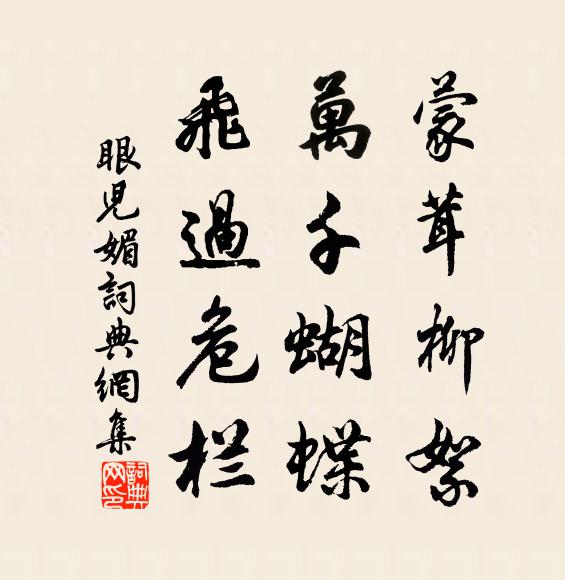 蒙茸柳絮
萬千蝴蝶
飛過危栏
眼児媚詞典網集
詞典
网印